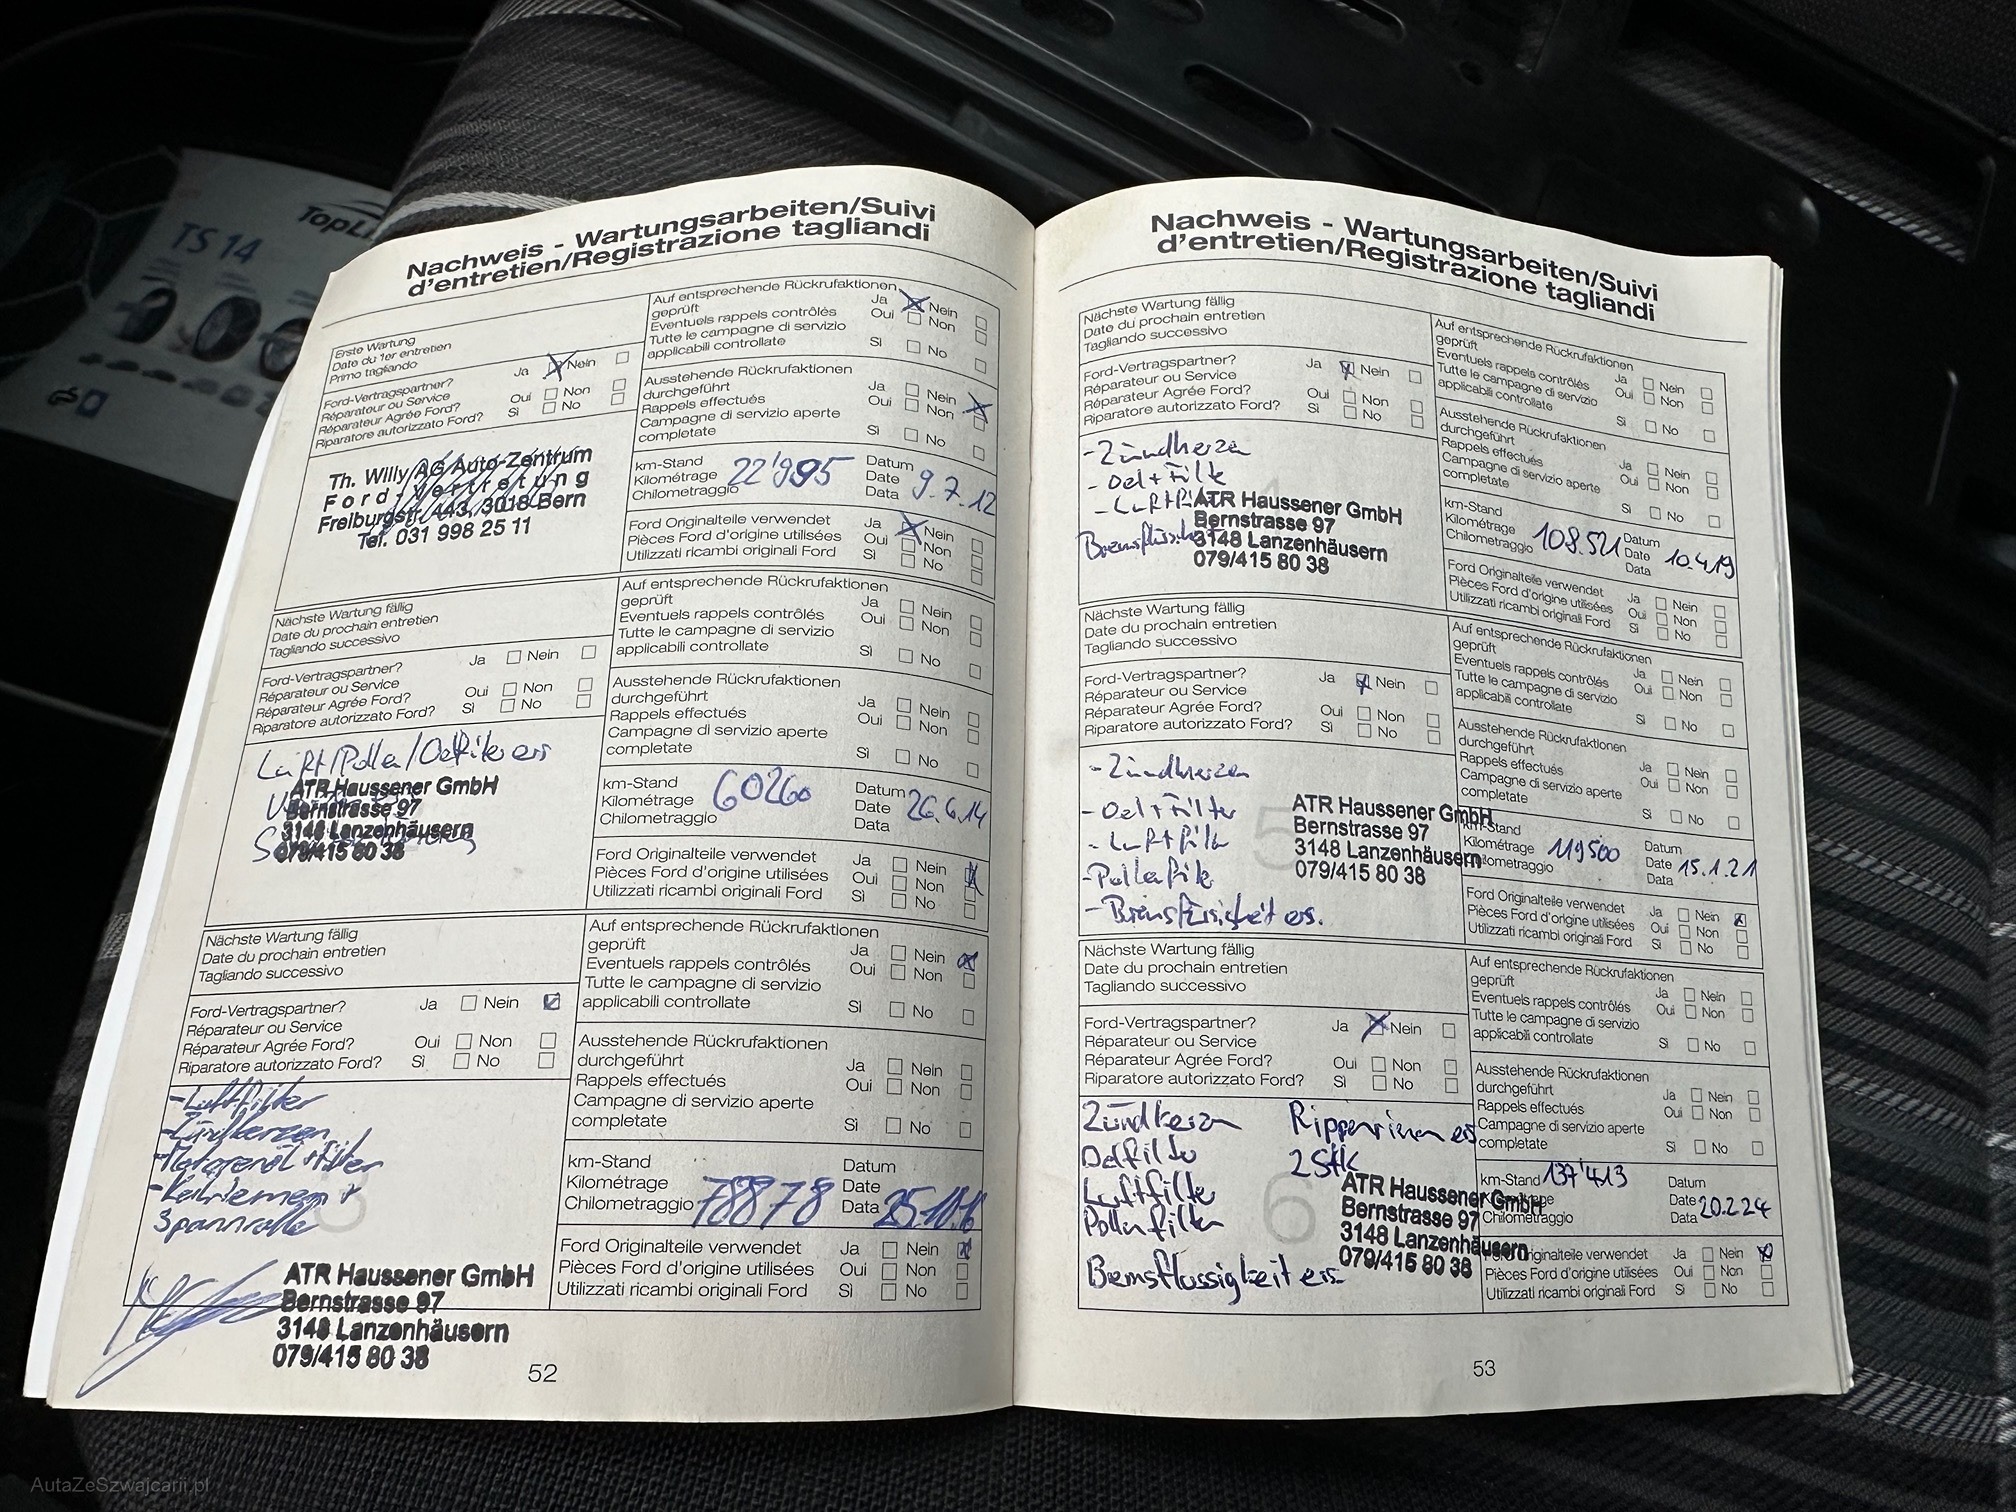 TS 14
TopLi
Nachweis - Wartungsarbeiten/Suivi
d'entretien/Registrazione tagliandi
Erste Wartung
Date du 1er entretien
Primo tagliando
Ford-Vertragspartner? Ja Nein
Réparateur ou Service
Réparateur Agrée Ford? Oui Non
Riparatore autorizzato Ford? Sì No
Th. Willy AG Auto-Zentrum
Ford-Vertretung
Freiburgstr. 443, 3018 Bern
Tel. 031 998 25 11
Auf entsprechende Rückrufaktionen
geprüft Ja Nein
Eventuels rappels contrôlés Oui Non
Tutte le campagne di servizio
applicabili controllate Sì No
Ausstehende Rückrufaktionen
durchgeführt Ja Nein
Rappels effectués Oui Non
Campagne di servizio aperte
completate Sì No
km-Stand Datum
Kilométrage 22'995 Date 9.7.12
Chilometraggio Data
Ford Originalteile verwendet Ja Nein
Pièces Ford d'origine utilisées Oui Non
Utilizzati ricambi originali Ford Sì No
Nächste Wartung fällig
Date du prochain entretien
Tagliando successivo
Ford-Vertragspartner? Ja Nein
Réparateur ou Service
Réparateur Agrée Ford? Oui Non
Riparatore autorizzato Ford? Sì No
ATR Haussener GmbH
Bernstrasse 97
3148 Lanzenhäusern
079/415 80 38
Auf entsprechende Rückrufaktionen
geprüft Ja Nein
Eventuels rappels contrôlés Oui Non
Tutte le campagne di servizio
applicabili controllate Sì No
Ausstehende Rückrufaktionen
durchgeführt Ja Nein
Rappels effectués Oui Non
Campagne di servizio aperte
completate Sì No
km-Stand Datum
Kilométrage 60260 Date 26.6.14
Chilometraggio Data
Ford Originalteile verwendet Ja Nein
Pièces Ford d'origine utilisées Oui Non
Utilizzati ricambi originali Ford Sì No
Nächste Wartung fällig
Date du prochain entretien
Tagliando successivo
Ford-Vertragspartner? Ja Nein
Réparateur ou Service
Réparateur Agrée Ford? Oui Non
Riparatore autorizzato Ford? Sì No
3
-Luftfilter
-Zündkerzen
-Motorenöl + filter
-Keilriemen +
Spannrolle
ATR Haussener GmbH
Bernstrasse 97
3148 Lanzenhäusern
079/415 80 38
Auf entsprechende Rückrufaktionen
geprüft Ja Nein
Eventuels rappels contrôlés Oui Non
Tutte le campagne di servizio
applicabili controllate Sì No
Ausstehende Rückrufaktionen
durchgeführt Ja Nein
Rappels effectués Oui Non
Campagne di servizio aperte
completate Sì No
km-Stand Datum
Kilométrage 78878 Date
Chilometraggio Data 25.10.16
Ford Originalteile verwendet Ja Nein
Pièces Ford d'origine utilisées Oui Non
Utilizzati ricambi originali Ford Sì No
52
Nachweis - Wartungsarbeiten/Suivi
d'entretien/Registrazione tagliandi
Nächste Wartung fällig
Date du prochain entretien
Tagliando successivo
Ford-Vertragspartner? Ja Nein
Réparateur ou Service
Réparateur Agrée Ford? Oui Non
Riparatore autorizzato Ford? Sì No
-Zündkerzen
-Oel + Filter
ATR Haussener GmbH
Bernstrasse 97
3148 Lanzenhäusern
079/415 80 38
Auf entsprechende Rückrufaktionen
geprüft Ja Nein
Eventuels rappels contrôlés Oui Non
Tutte le campagne di servizio
applicabili controllate Sì No
Ausstehende Rückrufaktionen
durchgeführt Ja Nein
Rappels effectués Oui Non
Campagne di servizio aperte
completate Sì No
km-Stand Datum
Kilométrage Date 10.4.19
Chilometraggio Data
Ford Originalteile verwendet Ja Nein
Pièces Ford d'origine utilisées Oui Non
Utilizzati ricambi originali Ford Sì No
Nächste Wartung fällig
Date du prochain entretien
Tagliando successivo
Ford-Vertragspartner? Ja Nein
Réparateur ou Service
Réparateur Agrée Ford? Oui Non
Riparatore autorizzato Ford? Sì No
5
-Zündkerzen
-Oel + Filter
-Luftfilter
-Pollenfilter
-Bremsflüssigkeit ers.
ATR Haussener GmbH
Bernstrasse 97
3148 Lanzenhäusern
079/415 80 38
Auf entsprechende Rückrufaktionen
geprüft Ja Nein
Eventuels rappels contrôlés Oui Non
Tutte le campagne di servizio
applicabili controllate Sì No
Ausstehende Rückrufaktionen
durchgeführt Ja Nein
Rappels effectués Oui Non
Campagne di servizio aperte
completate Sì No
km-Stand Datum
Kilométrage 119500 Date 15.1.21
Chilometraggio Data
Ford Originalteile verwendet Ja Nein
Pièces Ford d'origine utilisées Oui Non
Utilizzati ricambi originali Ford Sì No
Nächste Wartung fällig
Date du prochain entretien
Tagliando successivo
Ford-Vertragspartner? Ja Nein
Réparateur ou Service
Réparateur Agrée Ford? Oui Non
Riparatore autorizzato Ford? Sì No
6
Zündkerzen Rippenriemen ers
Oelfilter 2 Stk
Luftfilter
Pollenfilter
Bremsflüssigkeit ers.
ATR Haussener GmbH
Bernstrasse 97
3148 Lanzenhäusern
079/415 80 38
Auf entsprechende Rückrufaktionen
geprüft Ja Nein
Eventuels rappels contrôlés Oui Non
Tutte le campagne di servizio
applicabili controllate Sì No
Ausstehende Rückrufaktionen
durchgeführt Ja Nein
Rappels effectués Oui Non
Campagne di servizio aperte
completate Sì No
km-Stand 137'413 Datum
Kilométrage Date 20.2.24
Chilometraggio Data
Ford Originalteile verwendet Ja Nein
Pièces Ford d'origine utilisées Oui Non
Utilizzati ricambi originali Ford Sì No
53
AutaZeSzwajcarii.pl